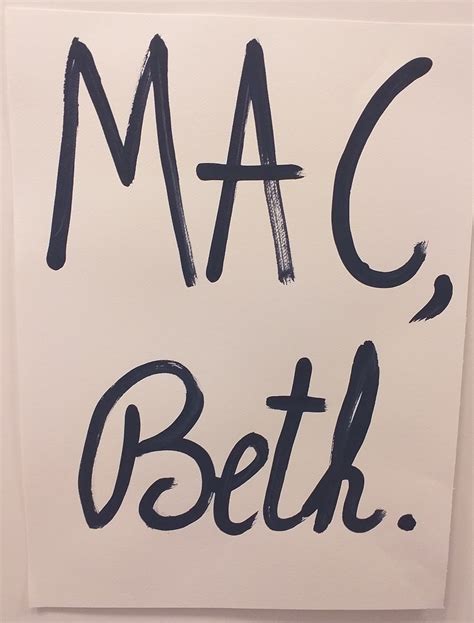 MAC,
Beth.